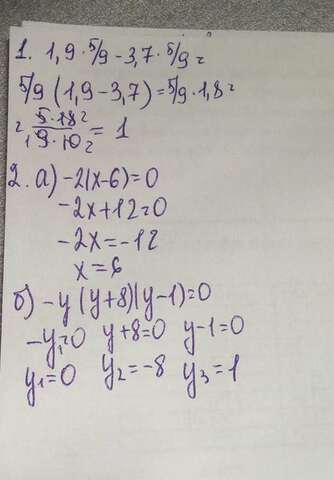 1. 1,9 · 5/9 - 3,7 · 5/9 =
5/9 (1,9 - 3,7) = 5/9 · 1,8 =
= 5 · 18 2 / 1 9 · 10 2 = 1
2. а) -2(x-6)=0
-2x+12=0
-2x=-12
x=6
б) -y (y+8)(y-1)=0
-y=0 y+8=0 y-1=0
y1=0 y2=-8 y3=1